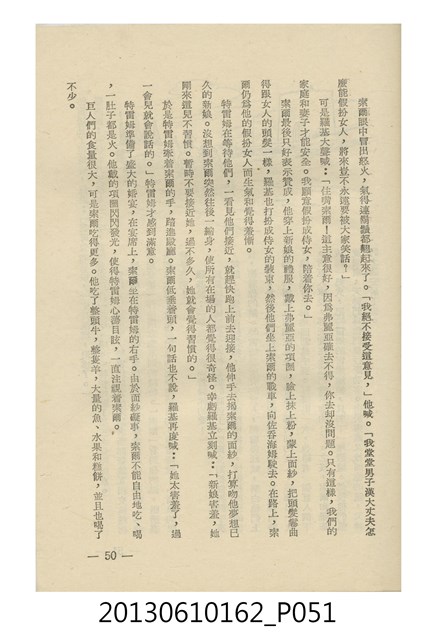 索爾眼中冒出怒火，氣得連鬍鬚都翹起來了。「我絕不接受這意見，」他喊。「我堂堂男子漢大丈夫怎
麼能假扮女人，將來豈不永遠要被大家笑話？」
可是羅基大聲喊：「住嘴索爾！這主意很好，因為弗麗亞確去不得，你去却沒問題。只有這樣，我們的
家庭和妻子才能安全。我願意假扮成侍女，陪着你去。」
索爾最後只好表示贊成，他穿上新娘的禮服，戴上弗麗亞的項圈，臉上抹上粉，蒙上面紗，把頭髮鬈曲
得跟女人的頭髮一樣，羅基也打扮成侍女的裝束，然後他們坐上索爾的戰車，向佐吞海姆駛去。在路上，索
爾仍為他的假扮女人而生氣和覺得羞慚。
特雷姆在等待他們，一看見他們接近，就趕快跑上前去迎接，他伸手去揭索爾的面紗，打算吻他夢想已
久的新娘。沒想到索爾突然往後一縮身，使所有在場的人都覺得很奇怪。幸虧羅基立刻喊：「新娘害羞，她
剛來這兒不習慣。暫時不要接近她，過不多久，她就會覺得習慣的。」
於是特雷姆牽着索爾的手，踏進歐廳。索爾低垂着頭，一句話也不說，羅基再度喊：「她太害羞了，過
一會兒就會說話的。」特雷姆才感到滿意。
特雷姆準備了盛大的婚宴，在宴席上，索爾坐在特雷姆的右手。由於面紗礙事，索爾不能自由地吃、喝
，一肚子都是火。他戴的項圈閃閃發光，使得特雷姆心蕩目眩，一直注視着索爾。
巨人們的食量很大，可是索爾吃得更多。他吃了整頭牛，整隻羊，大量的魚、水果和糕餅，並且也喝了
不少。
— 50 —
20130610162_P051